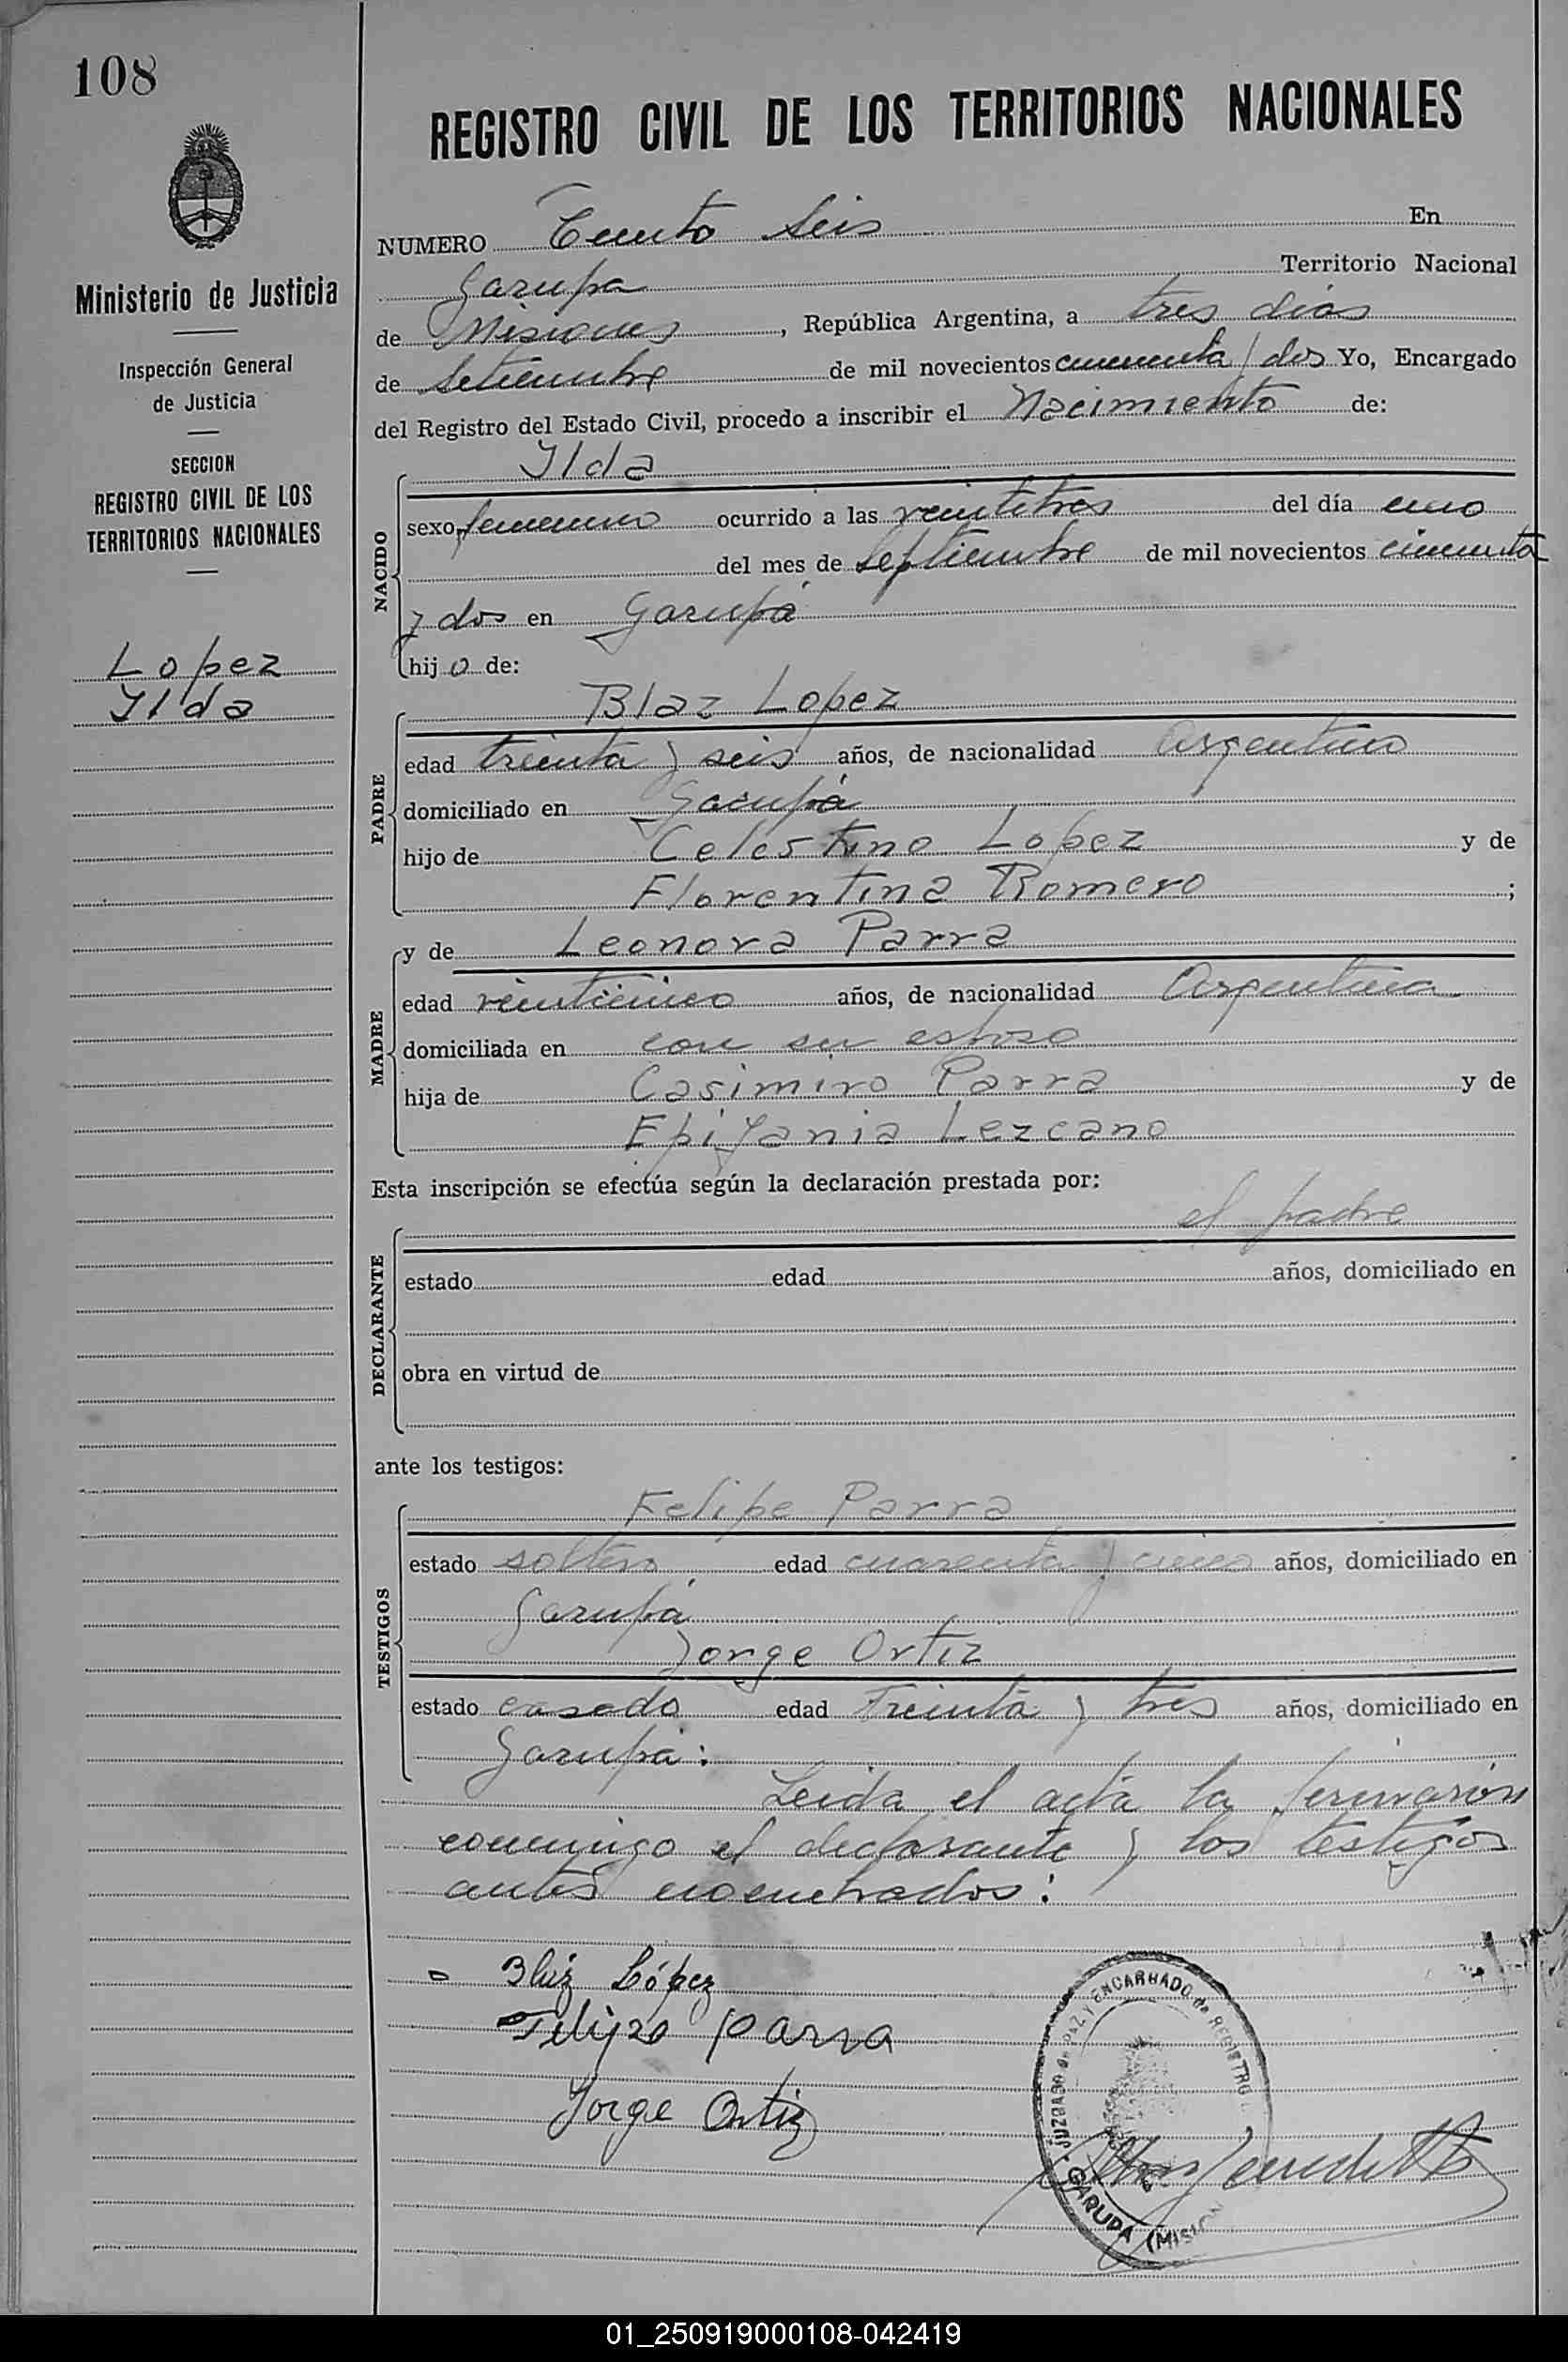 108
REGISTRO CIVIL DE LOS TERRITORIOS NACIONALES
Ministerio de Justicia
Inspección General
de Justicia
SECCION
REGISTRO CIVIL DE LOS
TERRITORIOS NACIONALES
Lopez
Ylda
NUMERO Ciento Seis En
Garupa Territorio Nacional
de Misiones, República Argentina, a tres dias
de Setiembre de mil novecientos cincuenta y dos Yo, Encargado
del Registro del Estado Civil, procedo a inscribir el Nacimiento de:
NACIDO
Ylda
sexo femenino ocurrido a las veintitres del día uno
del mes de Septiembre de mil novecientos cincuenta
y dos en Garupá
hijo de:
PADRE
Blaz Lopez
edad treinta y seis años, de nacionalidad Argentino
domiciliado en Garupá
hijo de Celestino Lopez y de
Florentina Romero;
MADRE
y de Leonora Parra
edad veinticinco años, de nacionalidad Argentina
domiciliada en con su esposo
hija de Casimiro Parra y de
Epifania Lezcano
Esta inscripción se efectúa según la declaración prestada por:
DECLARANTE
el padre
estado edad años, domiciliado en
obra en virtud de
ante los testigos:
TESTIGOS
Felipe Parra
estado soltero edad cuarenta y cinco años, domiciliado en
Garupá
Jorge Ortiz
estado casado edad Treinta y tres años, domiciliado en
Garupá:
Leida el acta la firmarón
conmigo el declarante y los testigos
antes
Blaz López
Felipe Parra
Jorge Ortiz
JUZGADO de PAZ Y ENCARGADO de REGISTRO
GARUPA (MISION
01_250919000108-042419